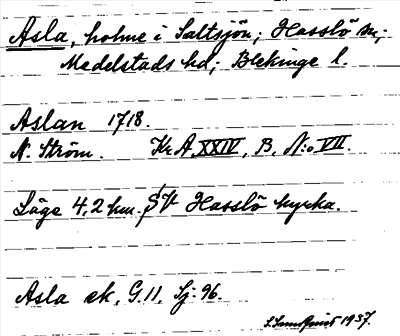 Asla, holme i Saltsjön; Hasslö sn;
Medelstads hd; Blekinge l.
Aslan 1718.
N. Ström. Kr. A. XXIV, B, N:o VII.
Läge 4,2 km. SV Hasslö kyrka.
Asla ek, G. 11, Sj: 96.
S Lundquist 1937.